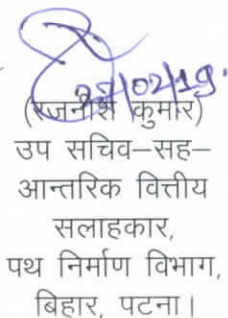 27/02/19.
(रजनीश कुमार)
उप सचिव–सह–
आन्तरिक वित्तीय
सलाहकार,
पथ निर्माण विभाग,
बिहार, पटना।